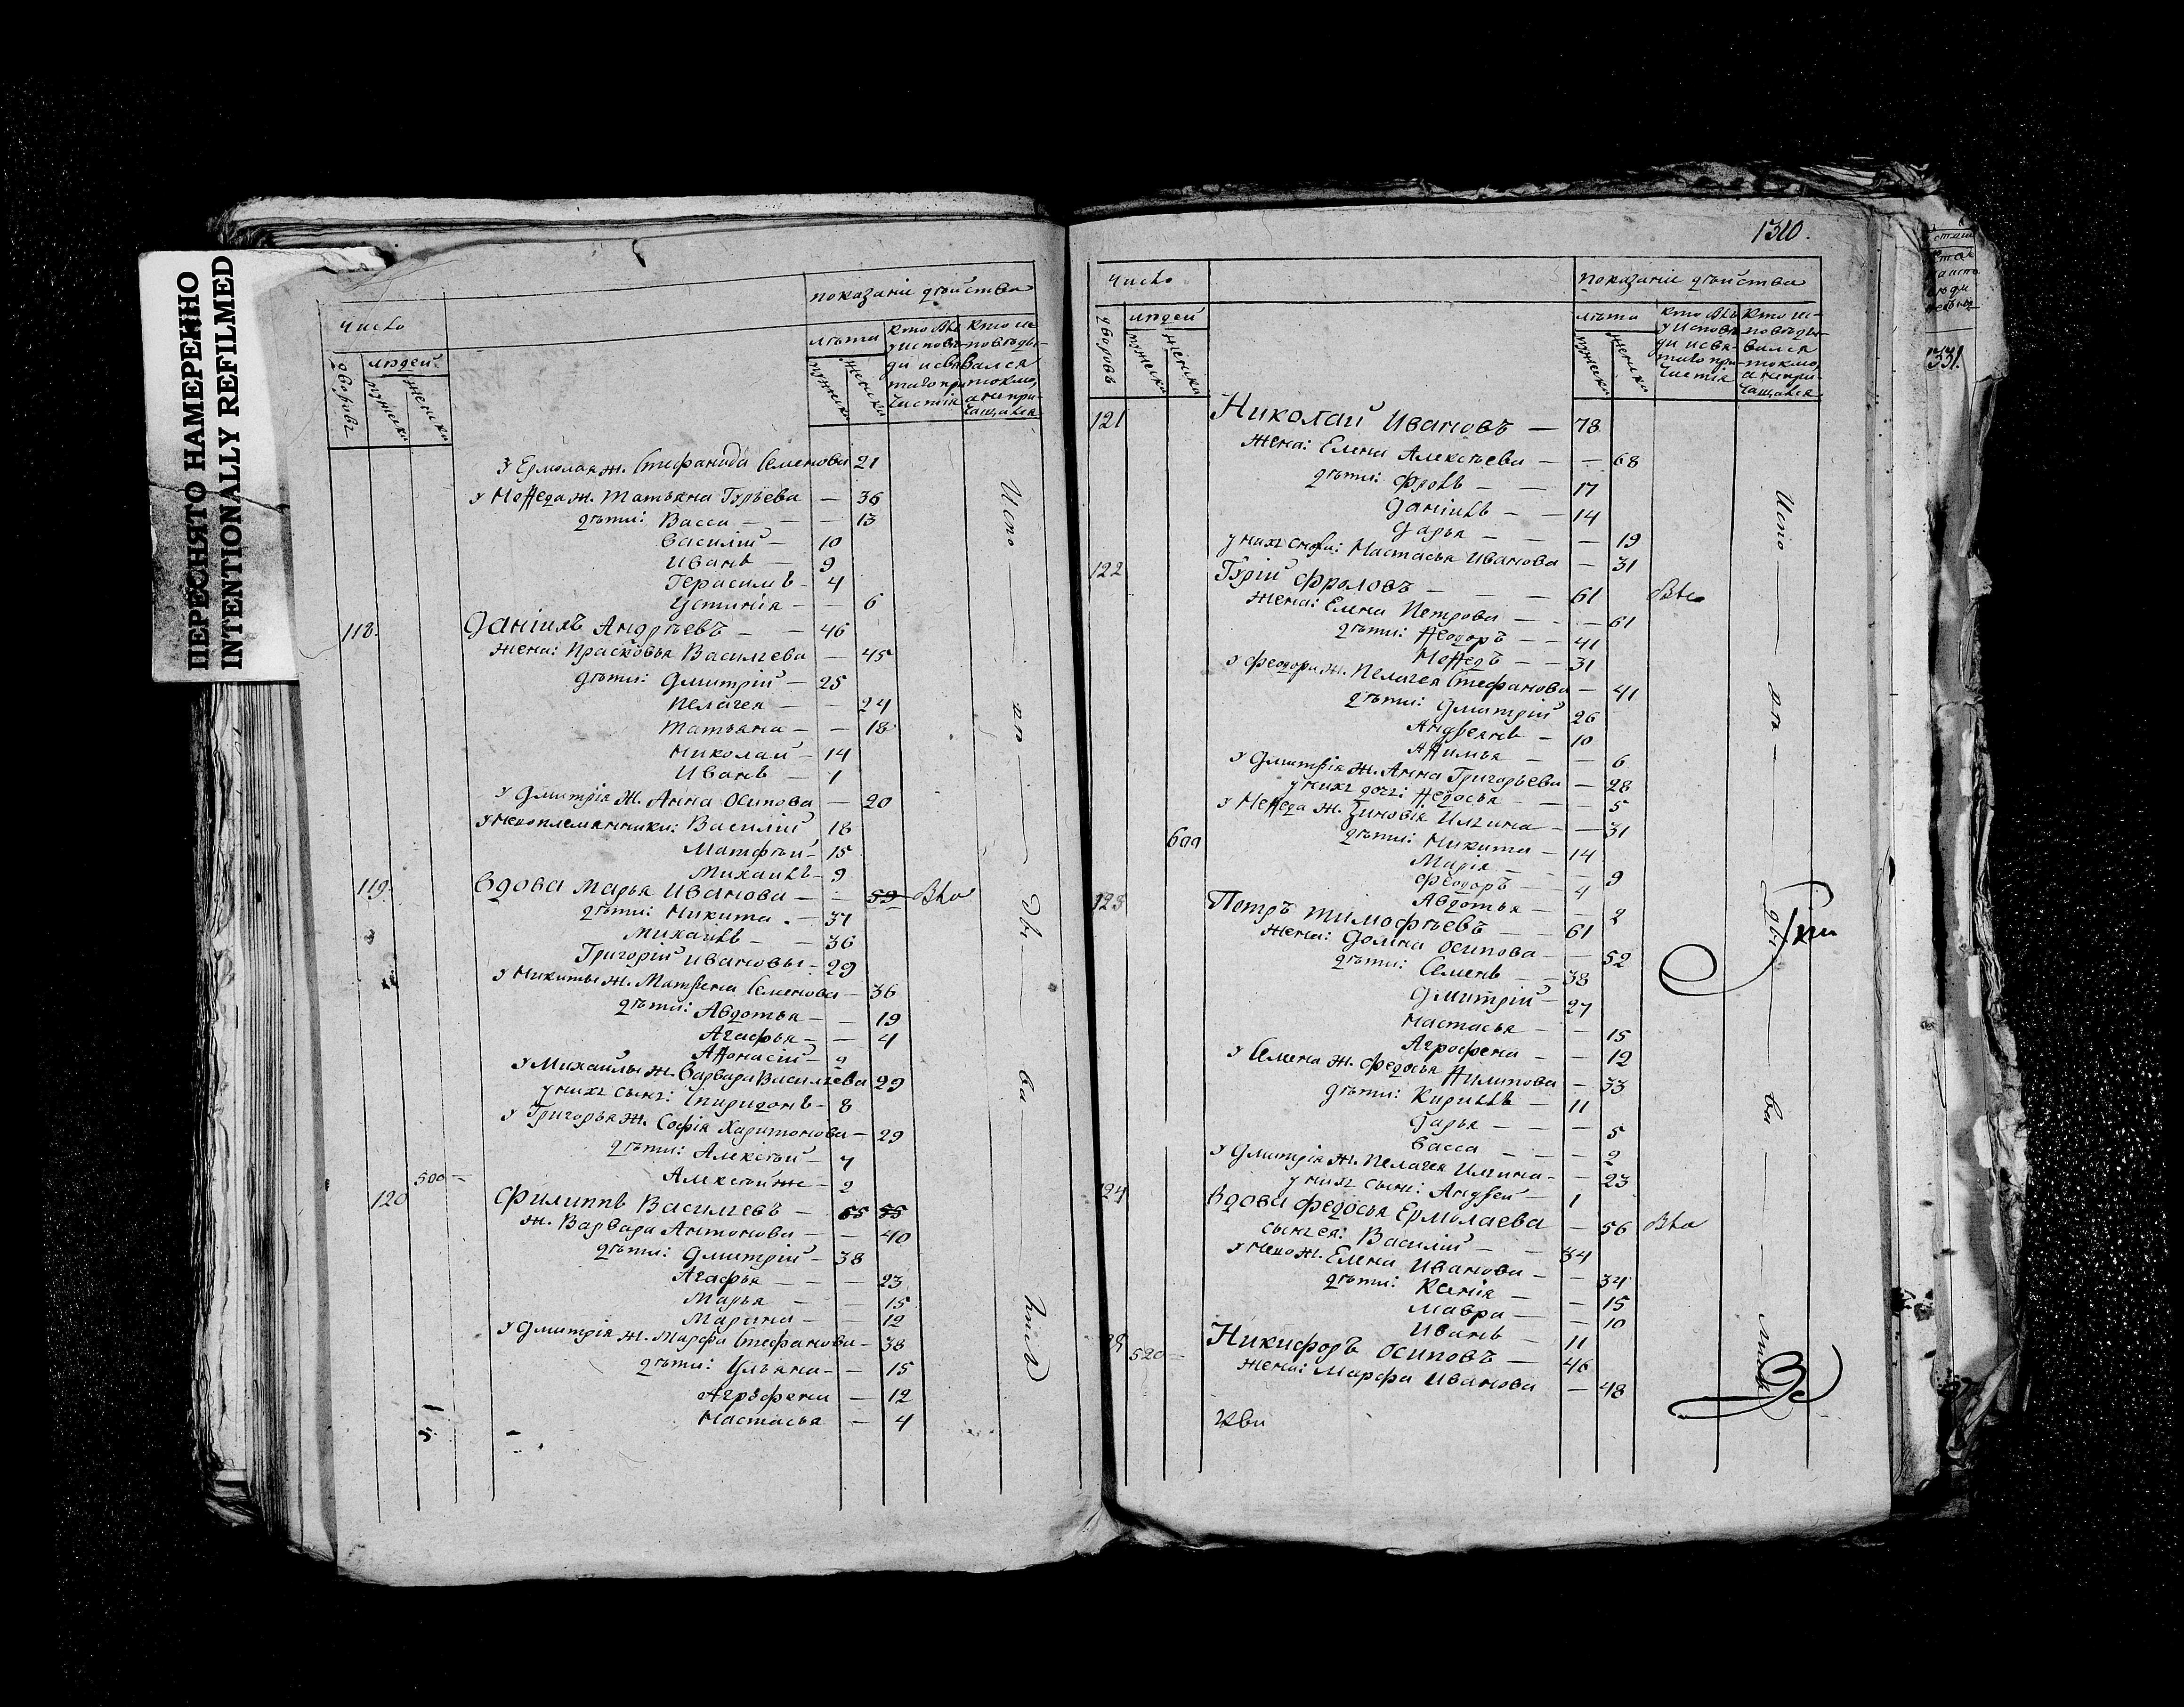 ПЕРЕСНЯТО НАМЕРЕННО
INTENTIONALLY REFILMED
число
показаніе дѣйства
людей
лѣта
дворовъ
мужеска
женска
мужеска
женска
у Ермолая ж. Стефанида Семенова 21
у Меѳеда ж. Татьяна Гурьева — 36
дѣти: Васса — — — 13
Василій — 10
Иванъ — 9
Герасимъ — 4
Устинія — — 6
118. Даніилъ Андрѣевъ — — 46
жена: Прасковья Василиева — 45
дѣти: Дмитрій — 25
Пелагея — — 24
Татьяна — — 18
Николай — 14
Иванъ — 1
у Дмитрія ж. Анна Осипова — 20
у него племянники: Василій 18
Матфѣй — 15
Михаилъ — 9
119. Вдова Марья Иванова — — 59
дѣти: Никита — 37
Михаилъ — — 36
Григорій Ивановы — 29
у Никиты ж. Матрена Семенова — 36
дѣти: Авдотья — — 19
Агафья — — 4
Аѳонасій — 2
у Михаилы ж. Варвара Василиева 29
у нихъ сынъ: Спиридонъ — 8
у Григорья ж. Софія Харитонова — 29
дѣти: Алексѣй — 7
500 — Алексѣй же — 2
120 Филиппъ Василиевъ — 55 55
ж. Варвара Антонова — — 40
дѣти: Дмитрій — 38
Агафья — — — 23
Марья — — 15
Марина — — 12
у Дмитрія ж. Марфа Стефанова — 38
дѣти: Ульяна — — 15
Агрофена — 12
Настасья — 4
1310.
число
показаніе дѣйства
людей
лѣта
дворовъ
мужеска
женска
мужеска
женска
121 Николай Ивановъ — 78
жена: Елена Алексѣева — — 68
дѣти: Фролъ — — 17
Даніилъ — — 14
Дарья — — — 19
у нихъ сноха: Настасья Иванова — 31
122 Гурій Фроловъ — — — 61
жена: Елена Петрова — — 61
дѣти: Ѳеодоръ — — 41
Меѳедъ — — 31
у Феодора ж. Пелагея Стефанова — 41
дѣти: Дмитрій 26
Андреянъ — 10
Аѳимья — — 6
у Дмитрія ж. Анна Григорьева — 28
у нихъ дочь: Ѳедосья — — — 5
у Меѳеда ж. Зиновія Илина — — 31
600 дѣти: Никита — 14
Марія — — — 9
Феодоръ — 4
Авдотья — — 2
123 Петръ Тимофѣевъ — — 61
жена: Домна Осипова — — 52
дѣти: Семенъ — — 38
Дмитрій — 27
Настасья — — 15
Агрофена — — 12
у Семена ж. Федосья Филипова — 33
дѣти: Кирилъ — 11
Дарья — — — 5
Васса — — — 2
у Дмитрія ж. Пелагея Илина — — 23
у нихъ сынъ: Андрей — 1
124 Вдова Федосья Ермолаева — 56
сынъ ея: Василій — — 34
у него ж. Елена Иванова — — 34
дѣти: Ксенія — — 15
Мавра — — 10
Иванъ — 11
520 — Никифоръ Осиповъ — 46
жена: Марфа Иванова — 48
1331.